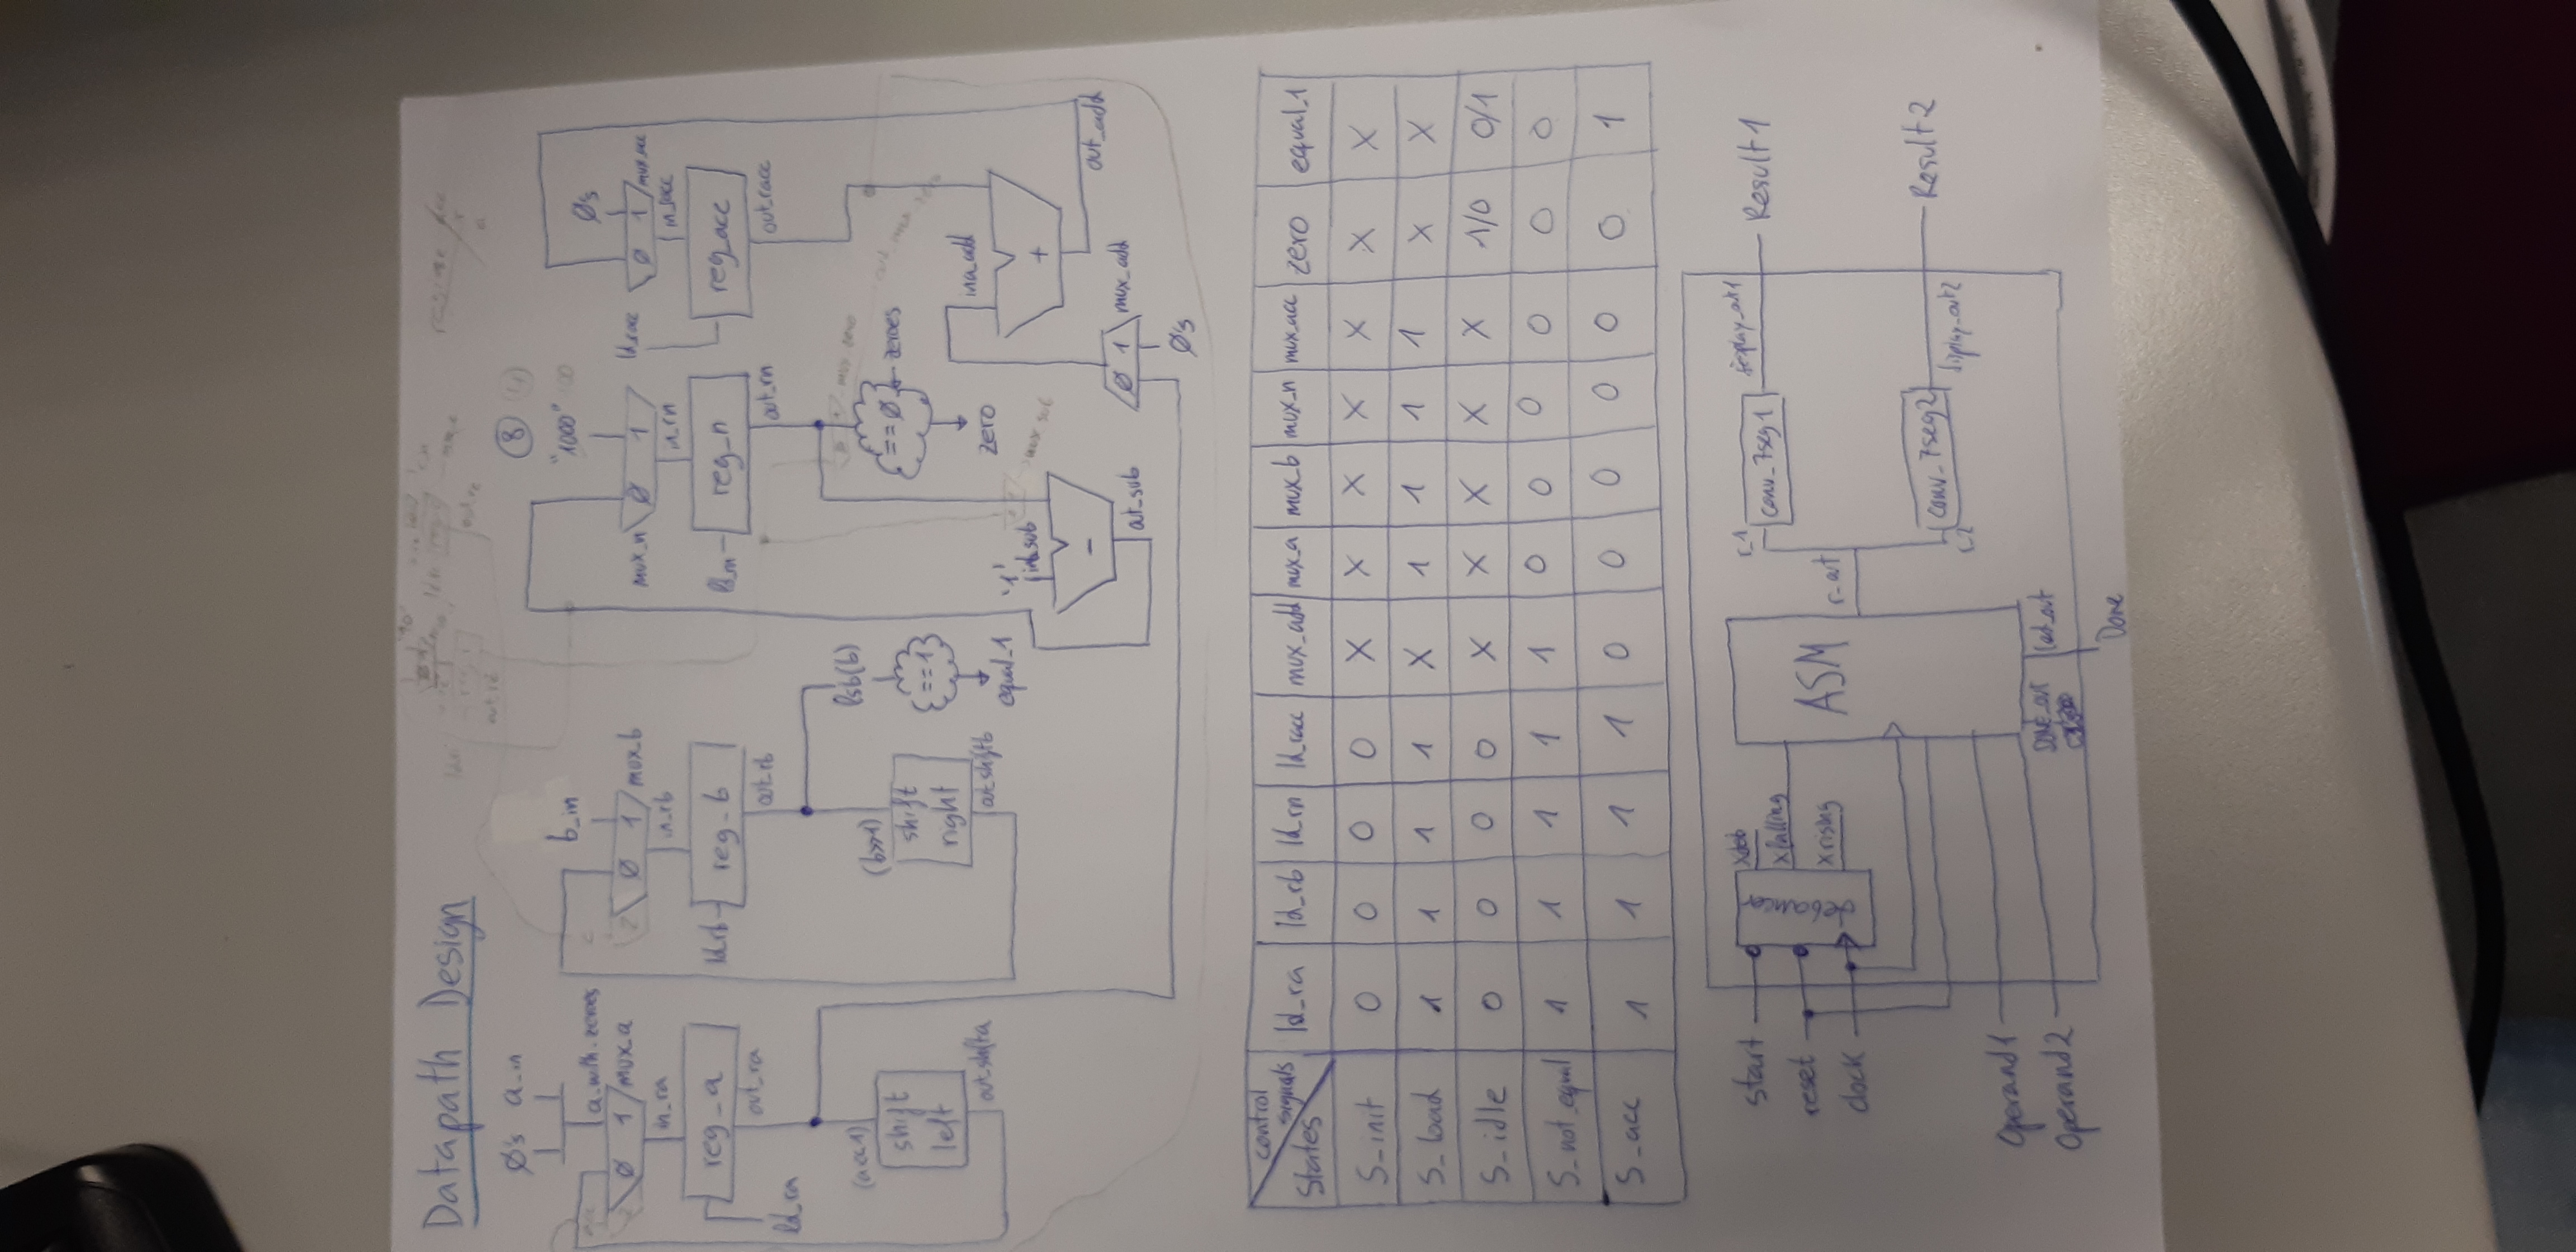 Datapath Design
Ø's a_in
a_with_zeroes
Ø 1 mux_a
in_ra
reg_a
out_ra
ld_ra
(a<<1)
shift
left
out_shifta
b_in
Ø 1 mux_b
in_rb
ld_rb
reg_b
out_rb
lsb(b)
(b>>1)
shift
right
==1
out_shiftb
equal_1
8
"1000"
mux_n Ø 1
in_rn
ld_rn
reg_n
out_rn
==Ø zeroes
zero
'1'
inb_sub
-
out_sub
Ø's
ld_racc
Ø 1 mux_acc
in_racc
reg_acc
out_racc
ina_add
+
out_add
Ø 1 mux_add
Ø's
control signals States ld_ra ld_rb ld_rn ld_racc mux_add mux_a mux_b mux_n mux_acc zero equal_1
S_init 0 0 0 0 X X X X X X X
S_load 1 1 1 1 X 1 1 1 1 X X
S_idle 0 0 0 0 X X X X X 1/0 0/1
S_not_equal 1 1 1 1 1 0 0 0 0 0 0
S_acc 1 1 1 1 0 0 0 0 0 0 1
start
reset
clock
debouncer
xdeb
xfalling
xrising
ASM
r_out
r_1
conv_7seg1
display_out1
Result1
r_2
conv_7seg2
display_out2
Result2
Operand1
Operand2
DONE_out
led_out
Done